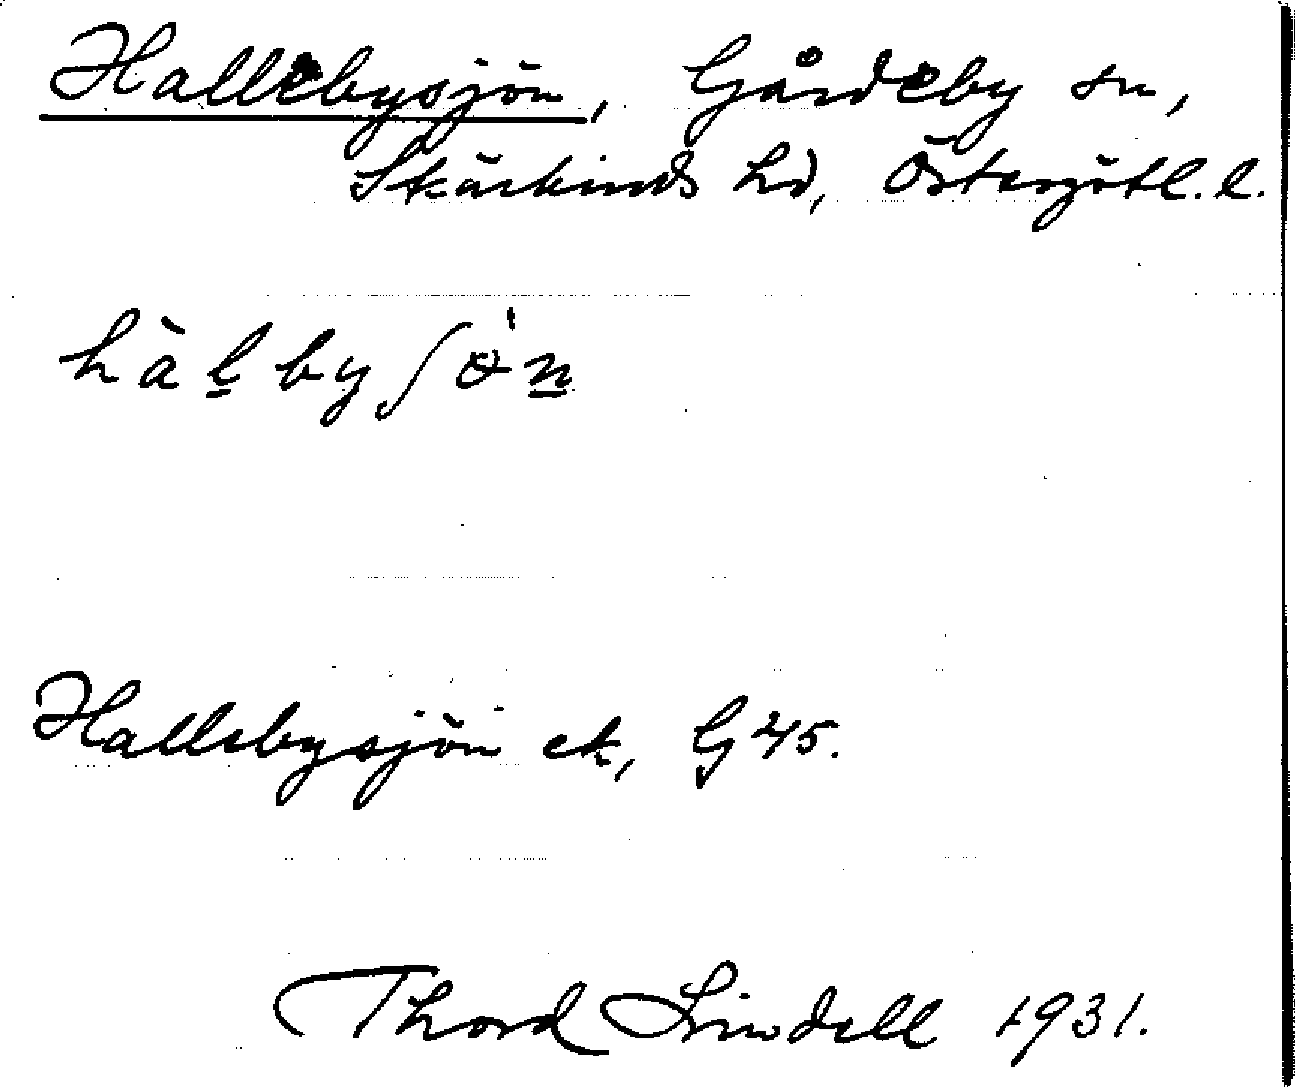 Hallebysjön, Gårdeby sn,
Skärkinds hd, Östergötl. l.
hàḻbyʃø̀ṉ
Hallebysjön ek, G 45.
Thord Lindell 1931.